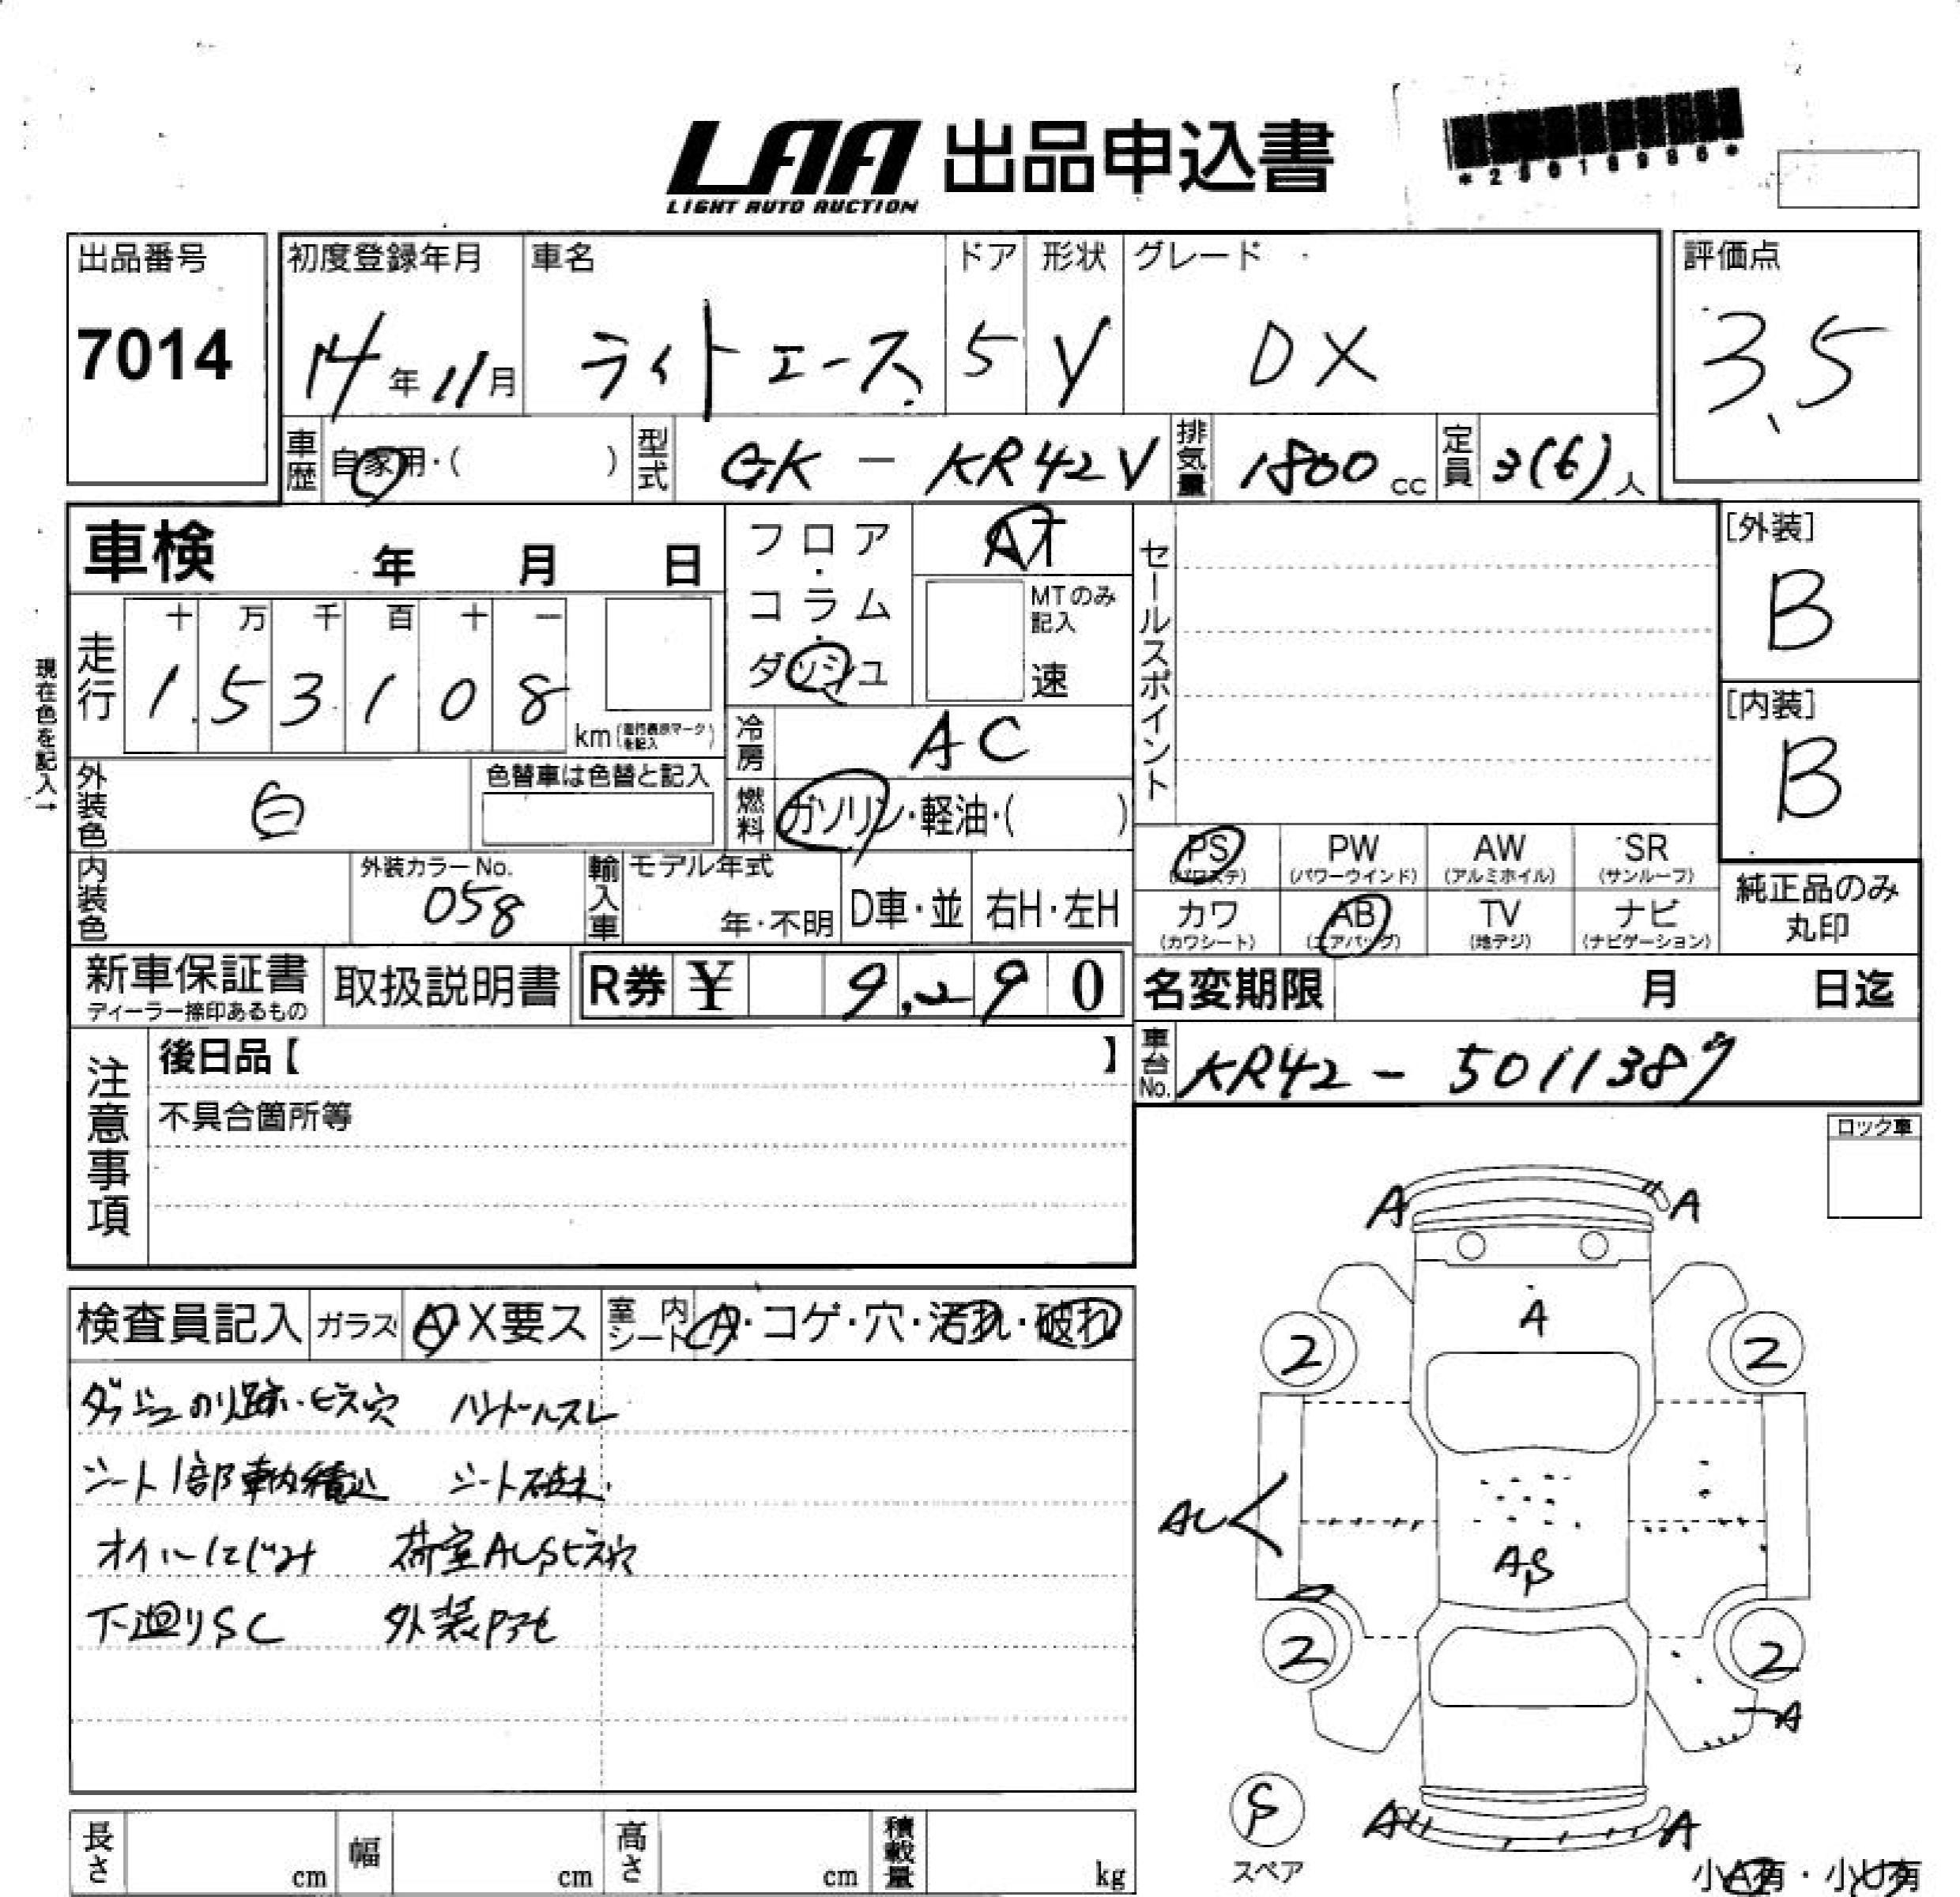 LAA 出品申込書
LIGHT AUTO AUCTION
*25018980*
出品番号
7014
初度登録年月
14年11月
車名
ライトエース
ドア
5
形状
V
グレード
DX
評価点
3.5
車歴
自家用・( )
型式
GK - KR42V
排気量
1800cc
定員
3(6)人
車検 年 月 日
フロア・コラム・ダッシュ
AT
MTのみ記入
速
セールスポイント
[外装]
B
[内装]
B
現在色を記入→
走行
十 万 千 百 十 一
1 5 3 1 0 8
km
冷房
AC
外装色
白
色替車は色替と記入
燃料
ガソリン・軽油・( )
内装色
外装カラーNo.
058
輸入車
モデル年式
年・不明
D車・並
右H・左H
PS
(パワステ)
PW
(パワーウインド)
AW
(アルミホイル)
SR
(サンルーフ)
カワ
(カワシート)
AB
(エアバッグ)
TV
(地デジ)
ナビ
(ナビゲーション)
純正品のみ
丸印
新車保証書
ディーラー捺印あるもの
取扱説明書
R券 ¥ 9,290
名変期限 月 日迄
注意事項
後日品【 】
不具合箇所等
車台No.
KR42 - 5011387
ロック車
検査員記入
ガラス
A・X要ス
室内シート
A・コゲ・穴・汚れ・破れ
ダッシュのり跡・ビス穴 ハンドルスレ
シート1部車内積込 シート破れ
オイルにじみ 荷室AUSビス穴
下廻りSC 外装
A A
A
2 2
AU
AS
2 2
A
A A
S
スペア
小A有・小U有
長さ cm
幅 cm
高さ cm
積載量 kg